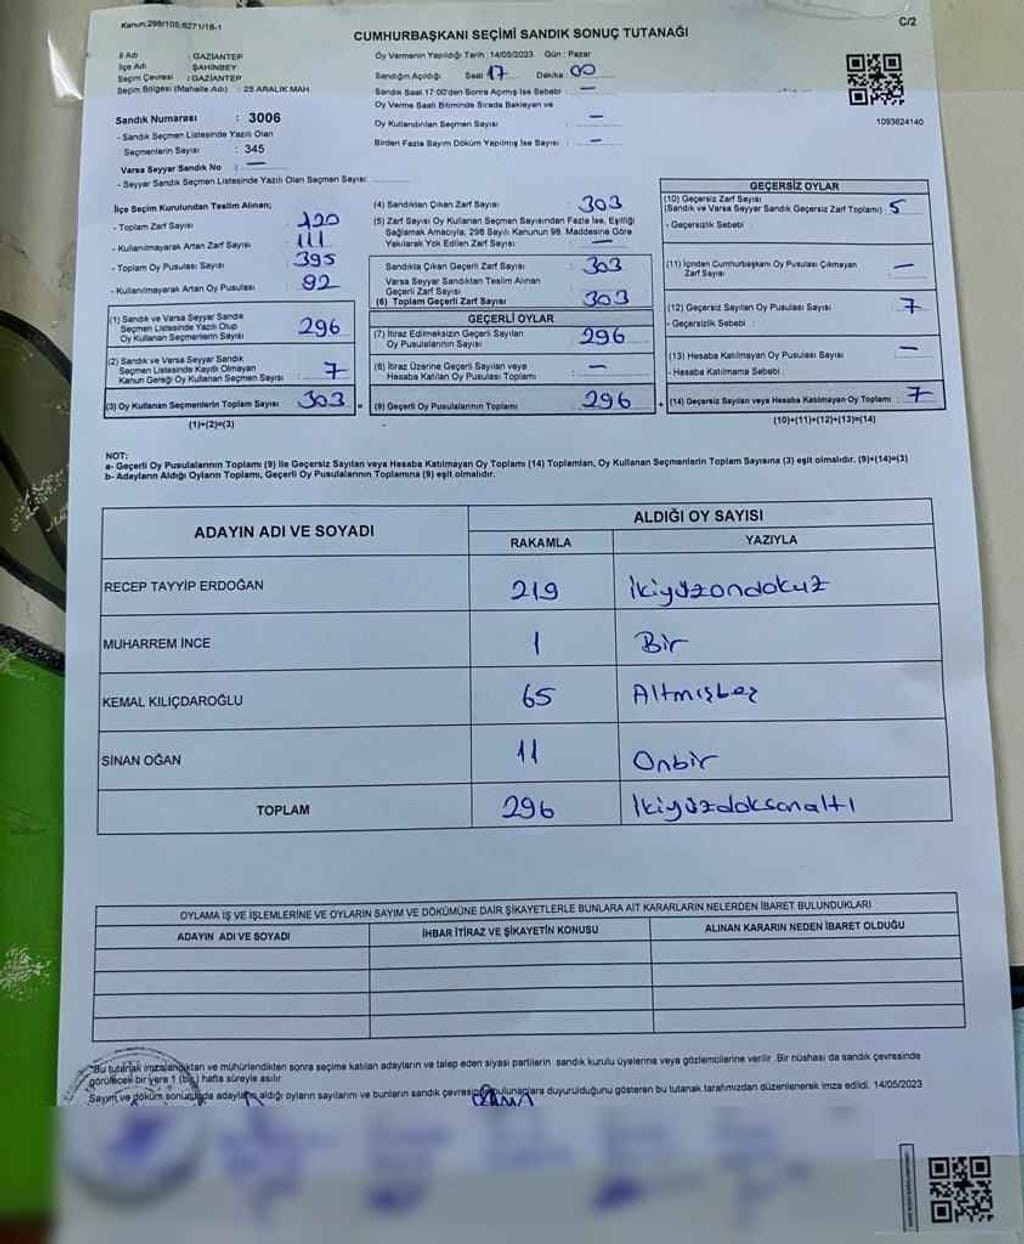 Kanun:298/105,6271/18-1
C/2
CUMHURBAŞKANI SEÇİMİ SANDIK SONUÇ TUTANAĞI
İl Adı : GAZİANTEP
İlçe Adı : ŞAHİNBEY
Seçim Çevresi : GAZİANTEP
Seçim Bölgesi (Mahalle Adı) : 25 ARALIK MAH.
Oy Vermenin Yapıldığı Tarih : 14/05/2023 Gün : Pazar
Sandığın Açıldığı Saat 17 Dakika 00
Sandık Saat 17:00'den Sonra Açılmış İse Sebebi : —
Oy Verme Saati Bitiminde Sırada Bekleyen ve
Oy Kullandırılan Seçmen Sayısı : —
Birden Fazla Sayım Döküm Yapılmış İse Sayısı : —
1093624140
Sandık Numarası : 3006
- Sandık Seçmen Listesinde Yazılı Olan
Seçmenlerin Sayısı : 345
Varsa Seyyar Sandık No : —
- Seyyar Sandık Seçmen Listesinde Yazılı Olan Seçmen Sayısı:
İlçe Seçim Kurulundan Teslim Alınan;
- Toplam Zarf Sayısı : 420
- Kullanılmayarak Artan Zarf Sayısı : 111
- Toplam Oy Pusulası Sayısı : 395
- Kullanılmayarak Artan Oy Pusulası : 92
(1) Sandık ve Varsa Seyyar Sandık
Seçmen Listesinde Yazılı Olup
Oy Kullanan Seçmenlerin Sayısı 296
(2) Sandık ve Varsa Seyyar Sandık
Seçmen Listesinde Kayıtlı Olmayan
Kanun Gereği Oy Kullanan Seçmen Sayısı 7
(3) Oy Kullanan Seçmenlerin Toplam Sayısı 303 =
(1)+(2)=(3)
(4) Sandıktan Çıkan Zarf Sayısı : 303
(5) Zarf Sayısı Oy Kullanan Seçmen Sayısından Fazla İse, Eşitliği
Sağlamak Amacıyla, 298 Sayılı Kanunun 98. Maddesine Göre
Yakılarak Yok Edilen Zarf Sayısı : —
- Sandıkta Çıkan Geçerli Zarf Sayısı : 303
Varsa Seyyar Sandıktan Teslim Alınan
Geçerli Zarf Sayısı :
(6) Toplam Geçerli Zarf Sayısı 303
GEÇERLİ OYLAR
(7) İtiraz Edilmeksizin Geçerli Sayılan
Oy Pusulalarının Sayısı : 296
(8) İtiraz Üzerine Geçerli Sayılan veya
Hesaba Katılan Oy Pusulası Toplamı : —
(9) Geçerli Oy Pusulalarının Toplamı : 296 +
GEÇERSİZ OYLAR
(10) Geçersiz Zarf Sayısı
(Sandık ve Varsa Seyyar Sandık Geçersiz Zarf Toplamı) : 5
- Geçersizlik Sebebi :
(11) İçinden Cumhurbaşkanı Oy Pusulası Çıkmayan
Zarf Sayısı : —
(12) Geçersiz Sayılan Oy Pusulası Sayısı : 7
- Geçersizlik Sebebi :
(13) Hesaba Katılmayan Oy Pusulası Sayısı : —
- Hesaba Katılmama Sebebi :
(14) Geçersiz Sayılan veya Hesaba Katılmayan Oy Toplamı : 7
(10)+(11)+(12)+(13)=(14)
NOT:
a- Geçerli Oy Pusulalarının Toplamı (9) ile Geçersiz Sayılan veya Hesaba Katılmayan Oy Toplamı (14) Toplamları, Oy Kullanan Seçmenlerin Toplam Sayısına (3) eşit olmalıdır. (9)+(14)=(3)
b- Adayların Aldığı Oyların Toplamı, Geçerli Oy Pusulalarının Toplamına (9) eşit olmalıdır.
ADAYIN ADI VE SOYADI ALDIĞI OY SAYISI
RAKAMLA YAZIYLA
RECEP TAYYİP ERDOĞAN 219 İkiyüzondokuz
MUHARREM İNCE 1 Bir
KEMAL KILIÇDAROĞLU 65 Altmışbeş
SİNAN OĞAN 11 Onbir
TOPLAM 296 İkiyüzdoksanaltı
OYLAMA İŞ VE İŞLEMLERİNE VE OYLARIN SAYIM VE DÖKÜMÜNE DAİR ŞİKAYETLERLE BUNLARA AİT KARARLARIN NELERDEN İBARET BULUNDUKLARI
ADAYIN ADI VE SOYADI İHBAR İTİRAZ VE ŞİKAYETİN KONUSU ALINAN KARARIN NEDEN İBARET OLDUĞU
"Bu tutanak imzalandıktan ve mühürlendikten sonra seçime katılan adayların ve talep eden siyasi partilerin sandık kurulu üyelerine veya gözlemcilerine verilir. Bir nüshası da sandık çevresinde
görülecek bir yere 1 (bir) hafta süreyle asılır.
Sayım ve döküm sonucunda adayların aldığı oyların sayılarını ve bunların sandık çevresinde bulunanlara duyurulduğunu gösteren bu tutanak tarafımızdan düzenlenerek imza edildi. 14/05/2023